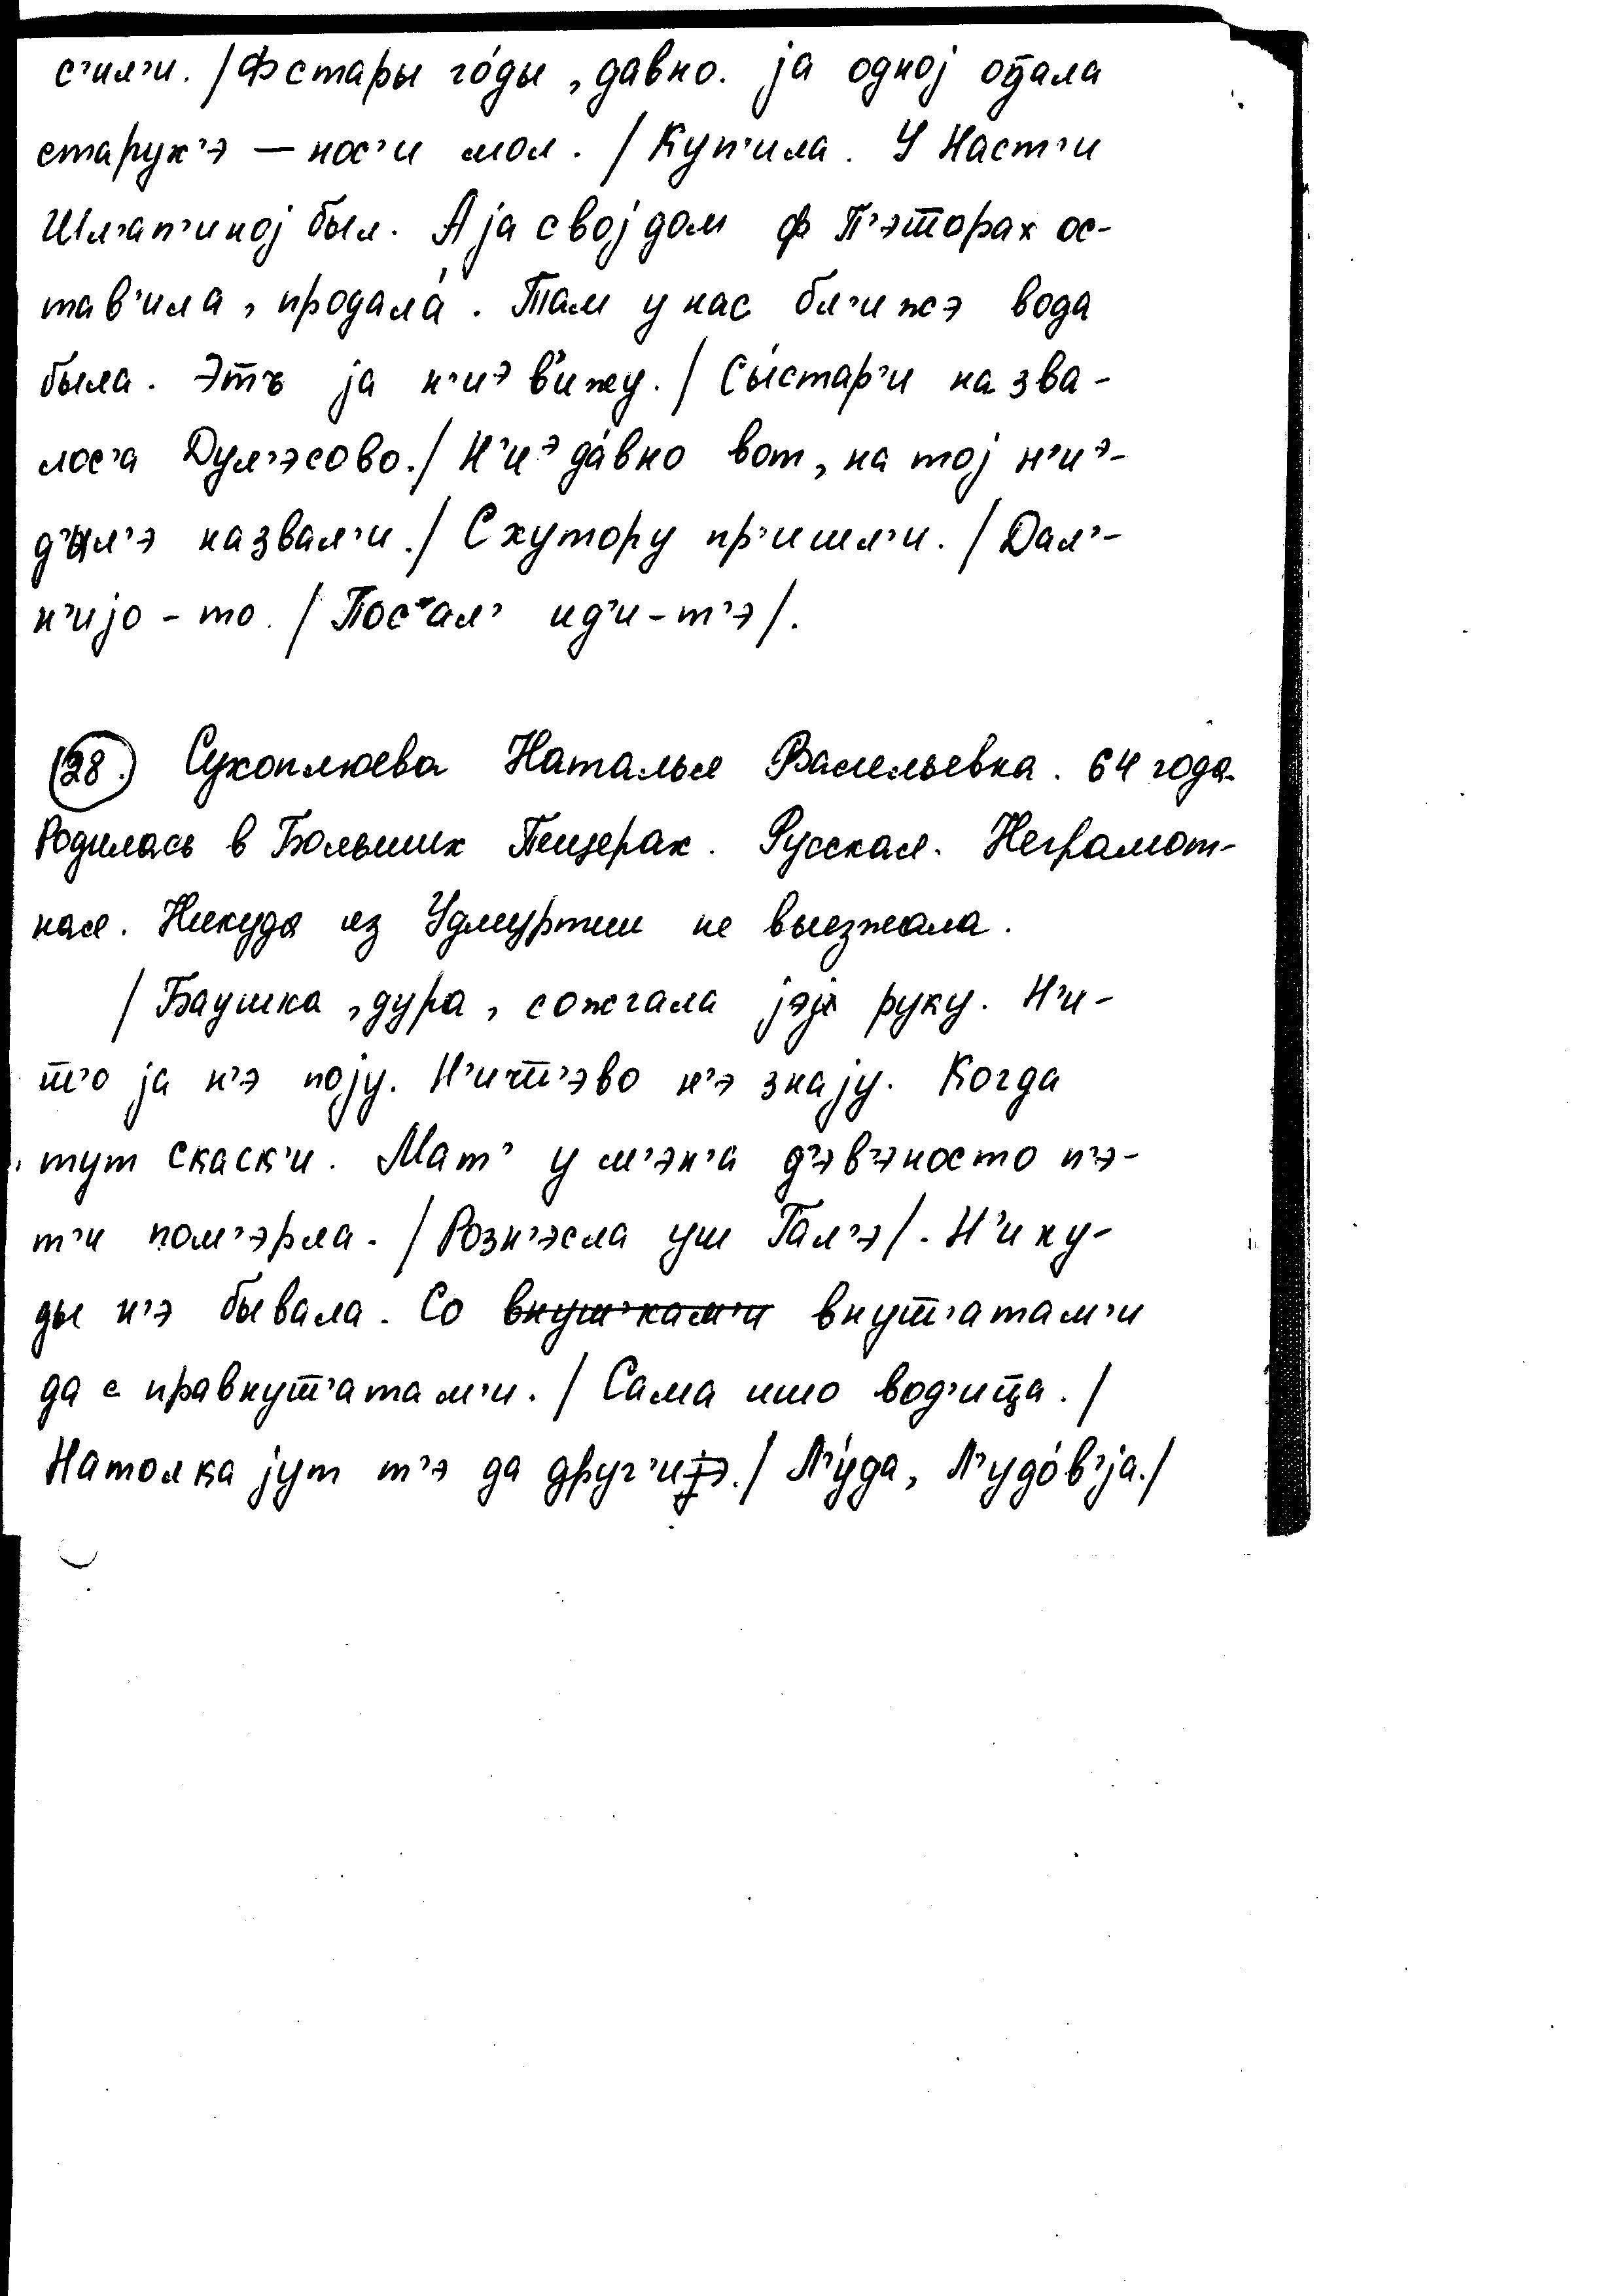 с'ил'и. / Ф стары го́ды, давно. ја одној оддала
старук'э — нос'и мол. / Куп'ила. У Наст'и
Шл'ап'иној был. А ја свој дом ф П'эт͡орах ос-
тав'ила, продала́. Там у нас бл'ижэ вода
была. Этъ ја н'иᵊ ви́жу. / Сы́стар'и назва-
лос'а Дул'эсово. / Н'иᵊда́вно вот, на тој н'иᵊ-
д'ил'э назвал'и. / С хутору пр'ишл'и. / Дал'-
н'ијо-то. / Пос'ал' ид'и-т'э /.
(28.) Сукоплюева Наталья Васильевна. 64 года.
Родилась в Больших Пещерах. Русская. Неграмот-
ная. Никуда из Удмуртии не выезжала.
/ Баушка, дура, сожгала јэј руку. Н'и-
т͡'о ја н'э појy. Н'ичт͡'эво н'э знају. Когда
тут скаск'и. Мат' у м'эн'а д'эв'эносто п'э-
т'и пом'эрла. / Розн'эсла уш Гал'э /. Н'ику-
ды н'э бывала. Со внут͡'атам'и
да с правнут͡'атам'и. / Сама ишо вод'ица. /
Натолка јут т'э да друг'ијэ. / Л'у́да, Л'удо́в'ја. /